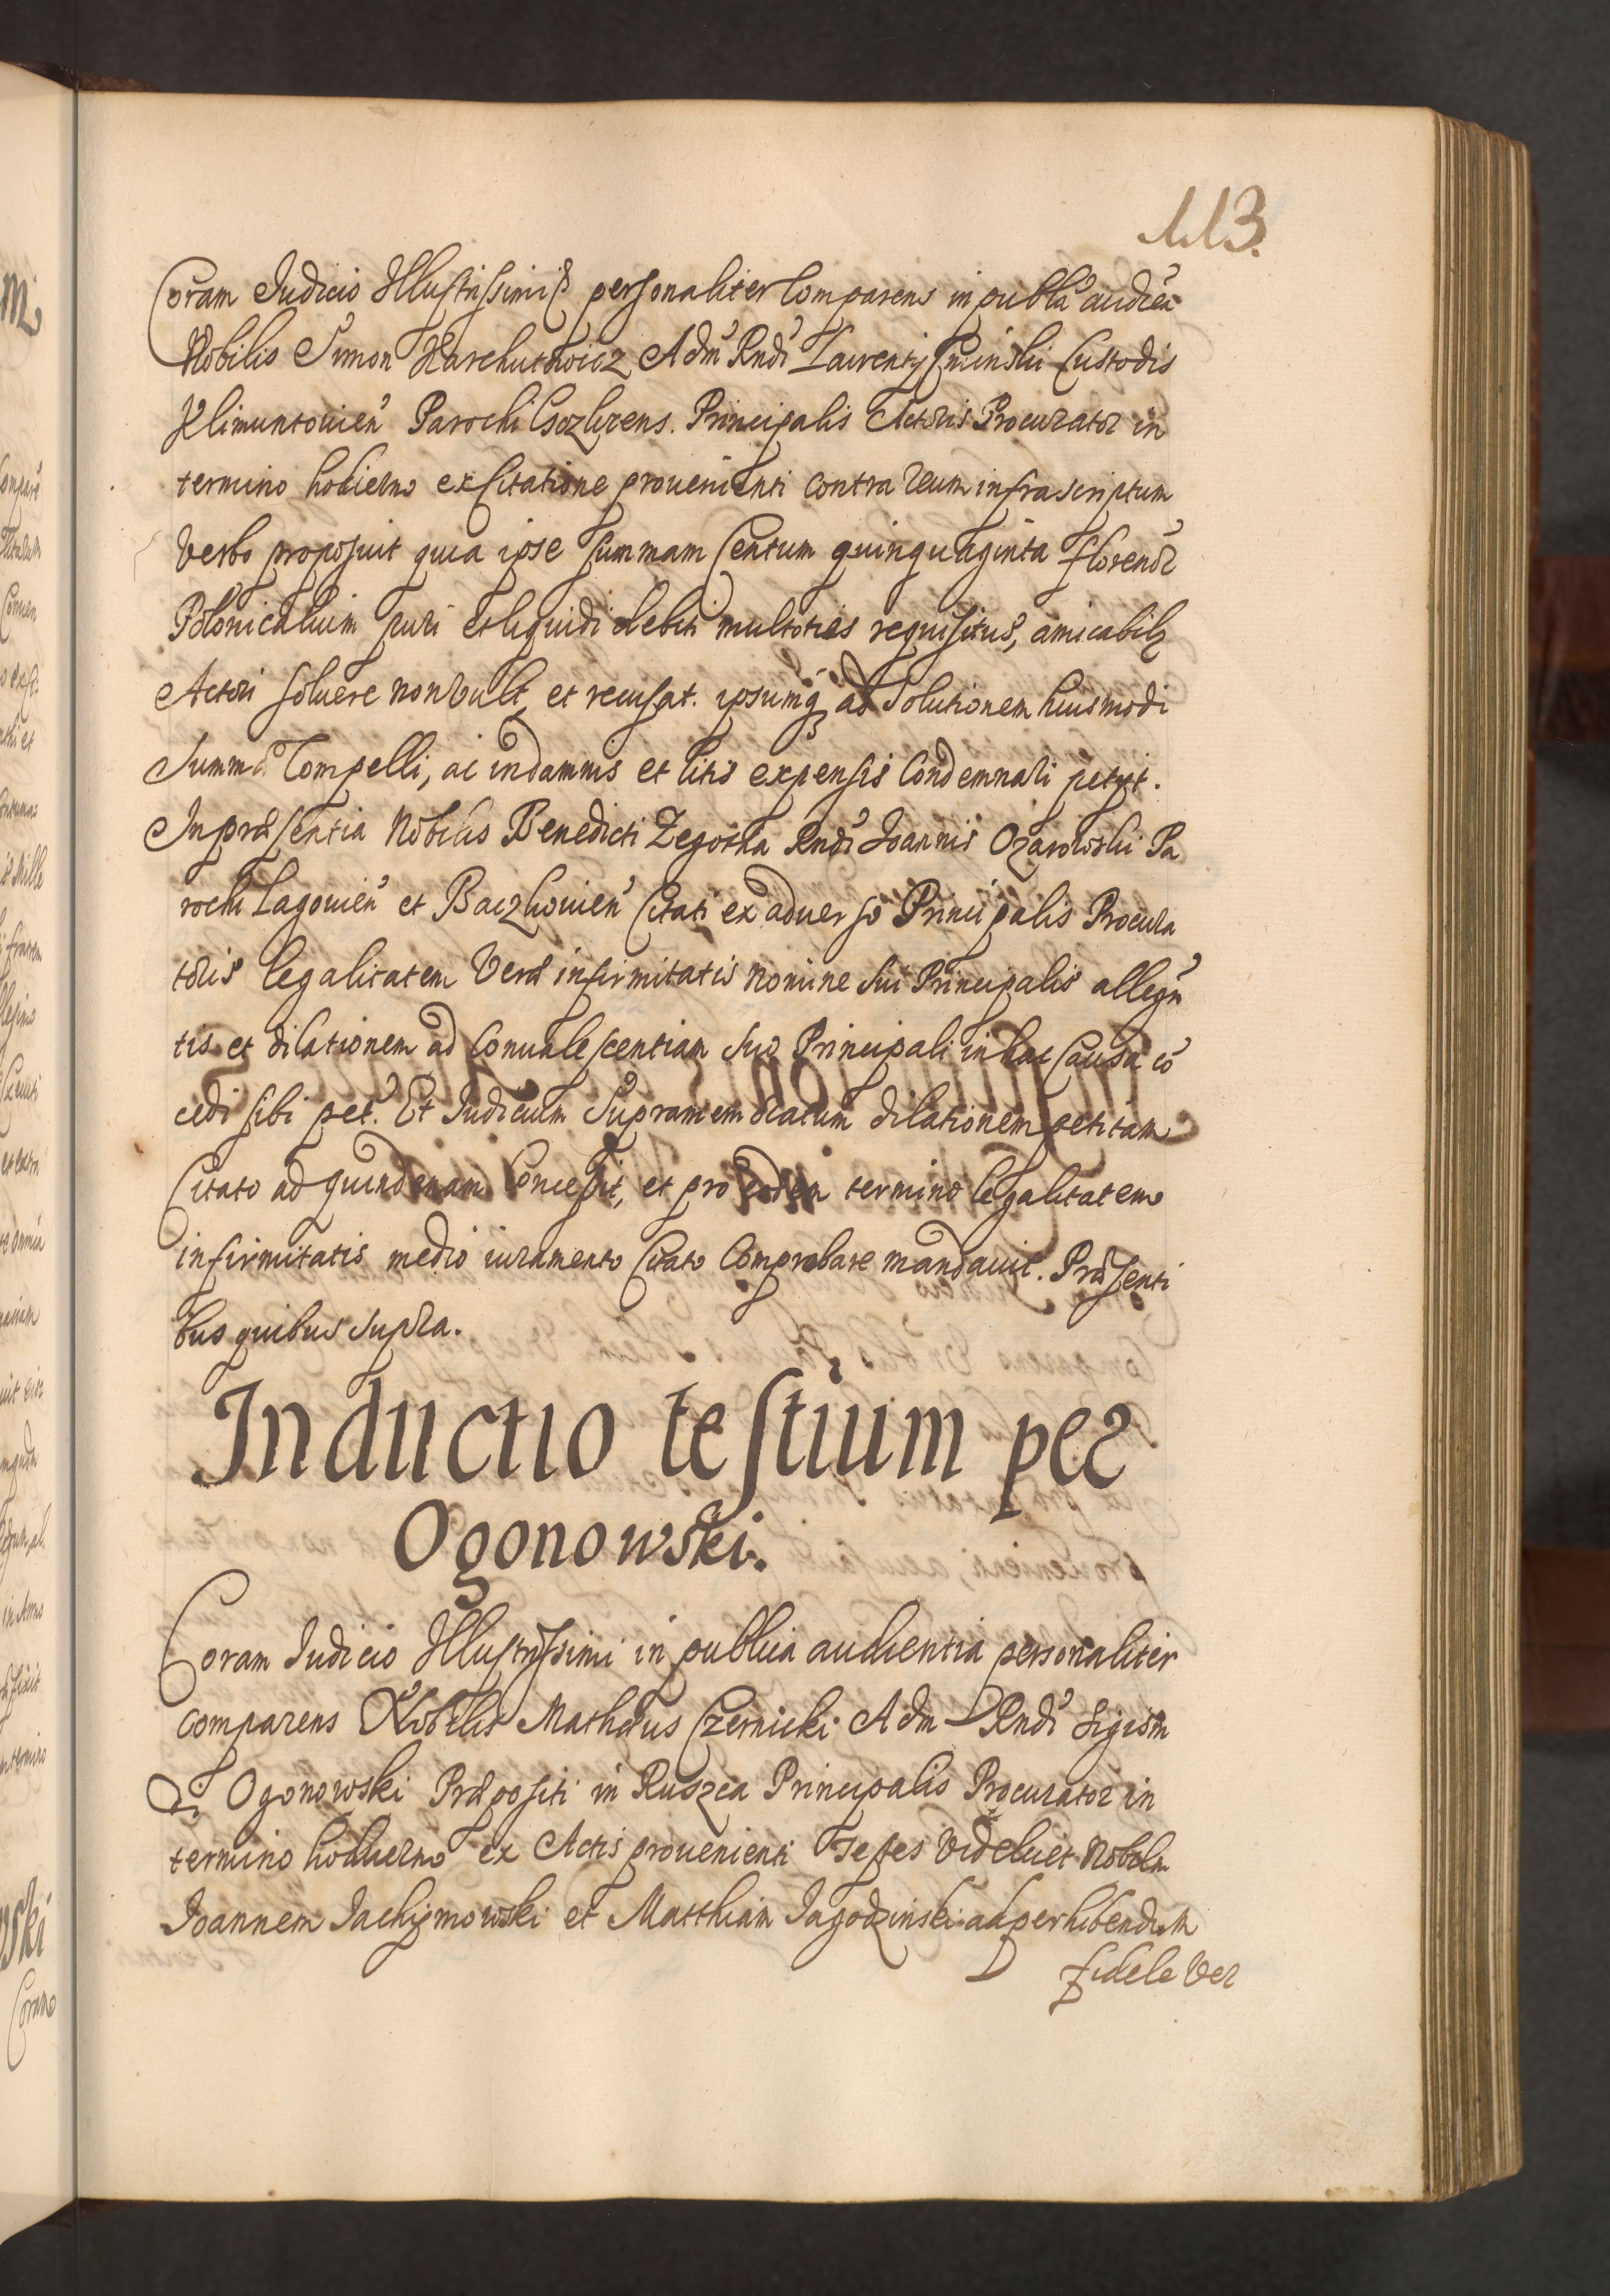 113.
Coram Judicio Illustrissimi personaliter Comparens in publa audiea
Nobilis Simon Adm Rndi Laurentij Custodis
Klimuntouien Parochi Principalis Actoris Procurator in
termino hodierno ex Citatione prouenienti contra Reum infrascriptum
Verbo proposuit quia ipse Summam Centum quinquaginta florenor
Polonicalium puri et liquidi debiti multoties requisitus, amicabilr
Actori soluere non vult, et recusat. ipsumq ad solutionem huiusmodi
Summæ Compelli, ac in damnis et litis expensis Condemnari petyt.
In præsentia Nobilis Benedicti Zegotha Rndi Joannis Ozarowski Pa
rochi Lagouien et Baczkouien Citati ex aduerso Principalis Procura
toris legalitatem Veræ infirmitatis nomine sui Principalis allegan
tis et dilationem ad Conualescentiam suo Principali in hac Causa co
cedi sibi pet. Et Judicium Supramemoratum dilationem petitam
Citato ad quindenam Concessit, et pro eodem termino legalitatem
infirmitatis medio iuramento Citato Comprobare mandauit. Præsenti
bus quibus supra.
Inductio testium per
Ogonowski.
Coram Judicio Illustrissimi in publica audientia personaliter
comparens Nobilis Mathæus Czernicki Adm Rndi Sigism
di Ogonowski Præpositi in Ruszca Principalis Procurator in
termino hodierno ex Actis prouenienti Testes Videlicet Nobilem
Joannem Jachymowski et Matthiam Jagodzinski ad perhibendum
D fidele Ver